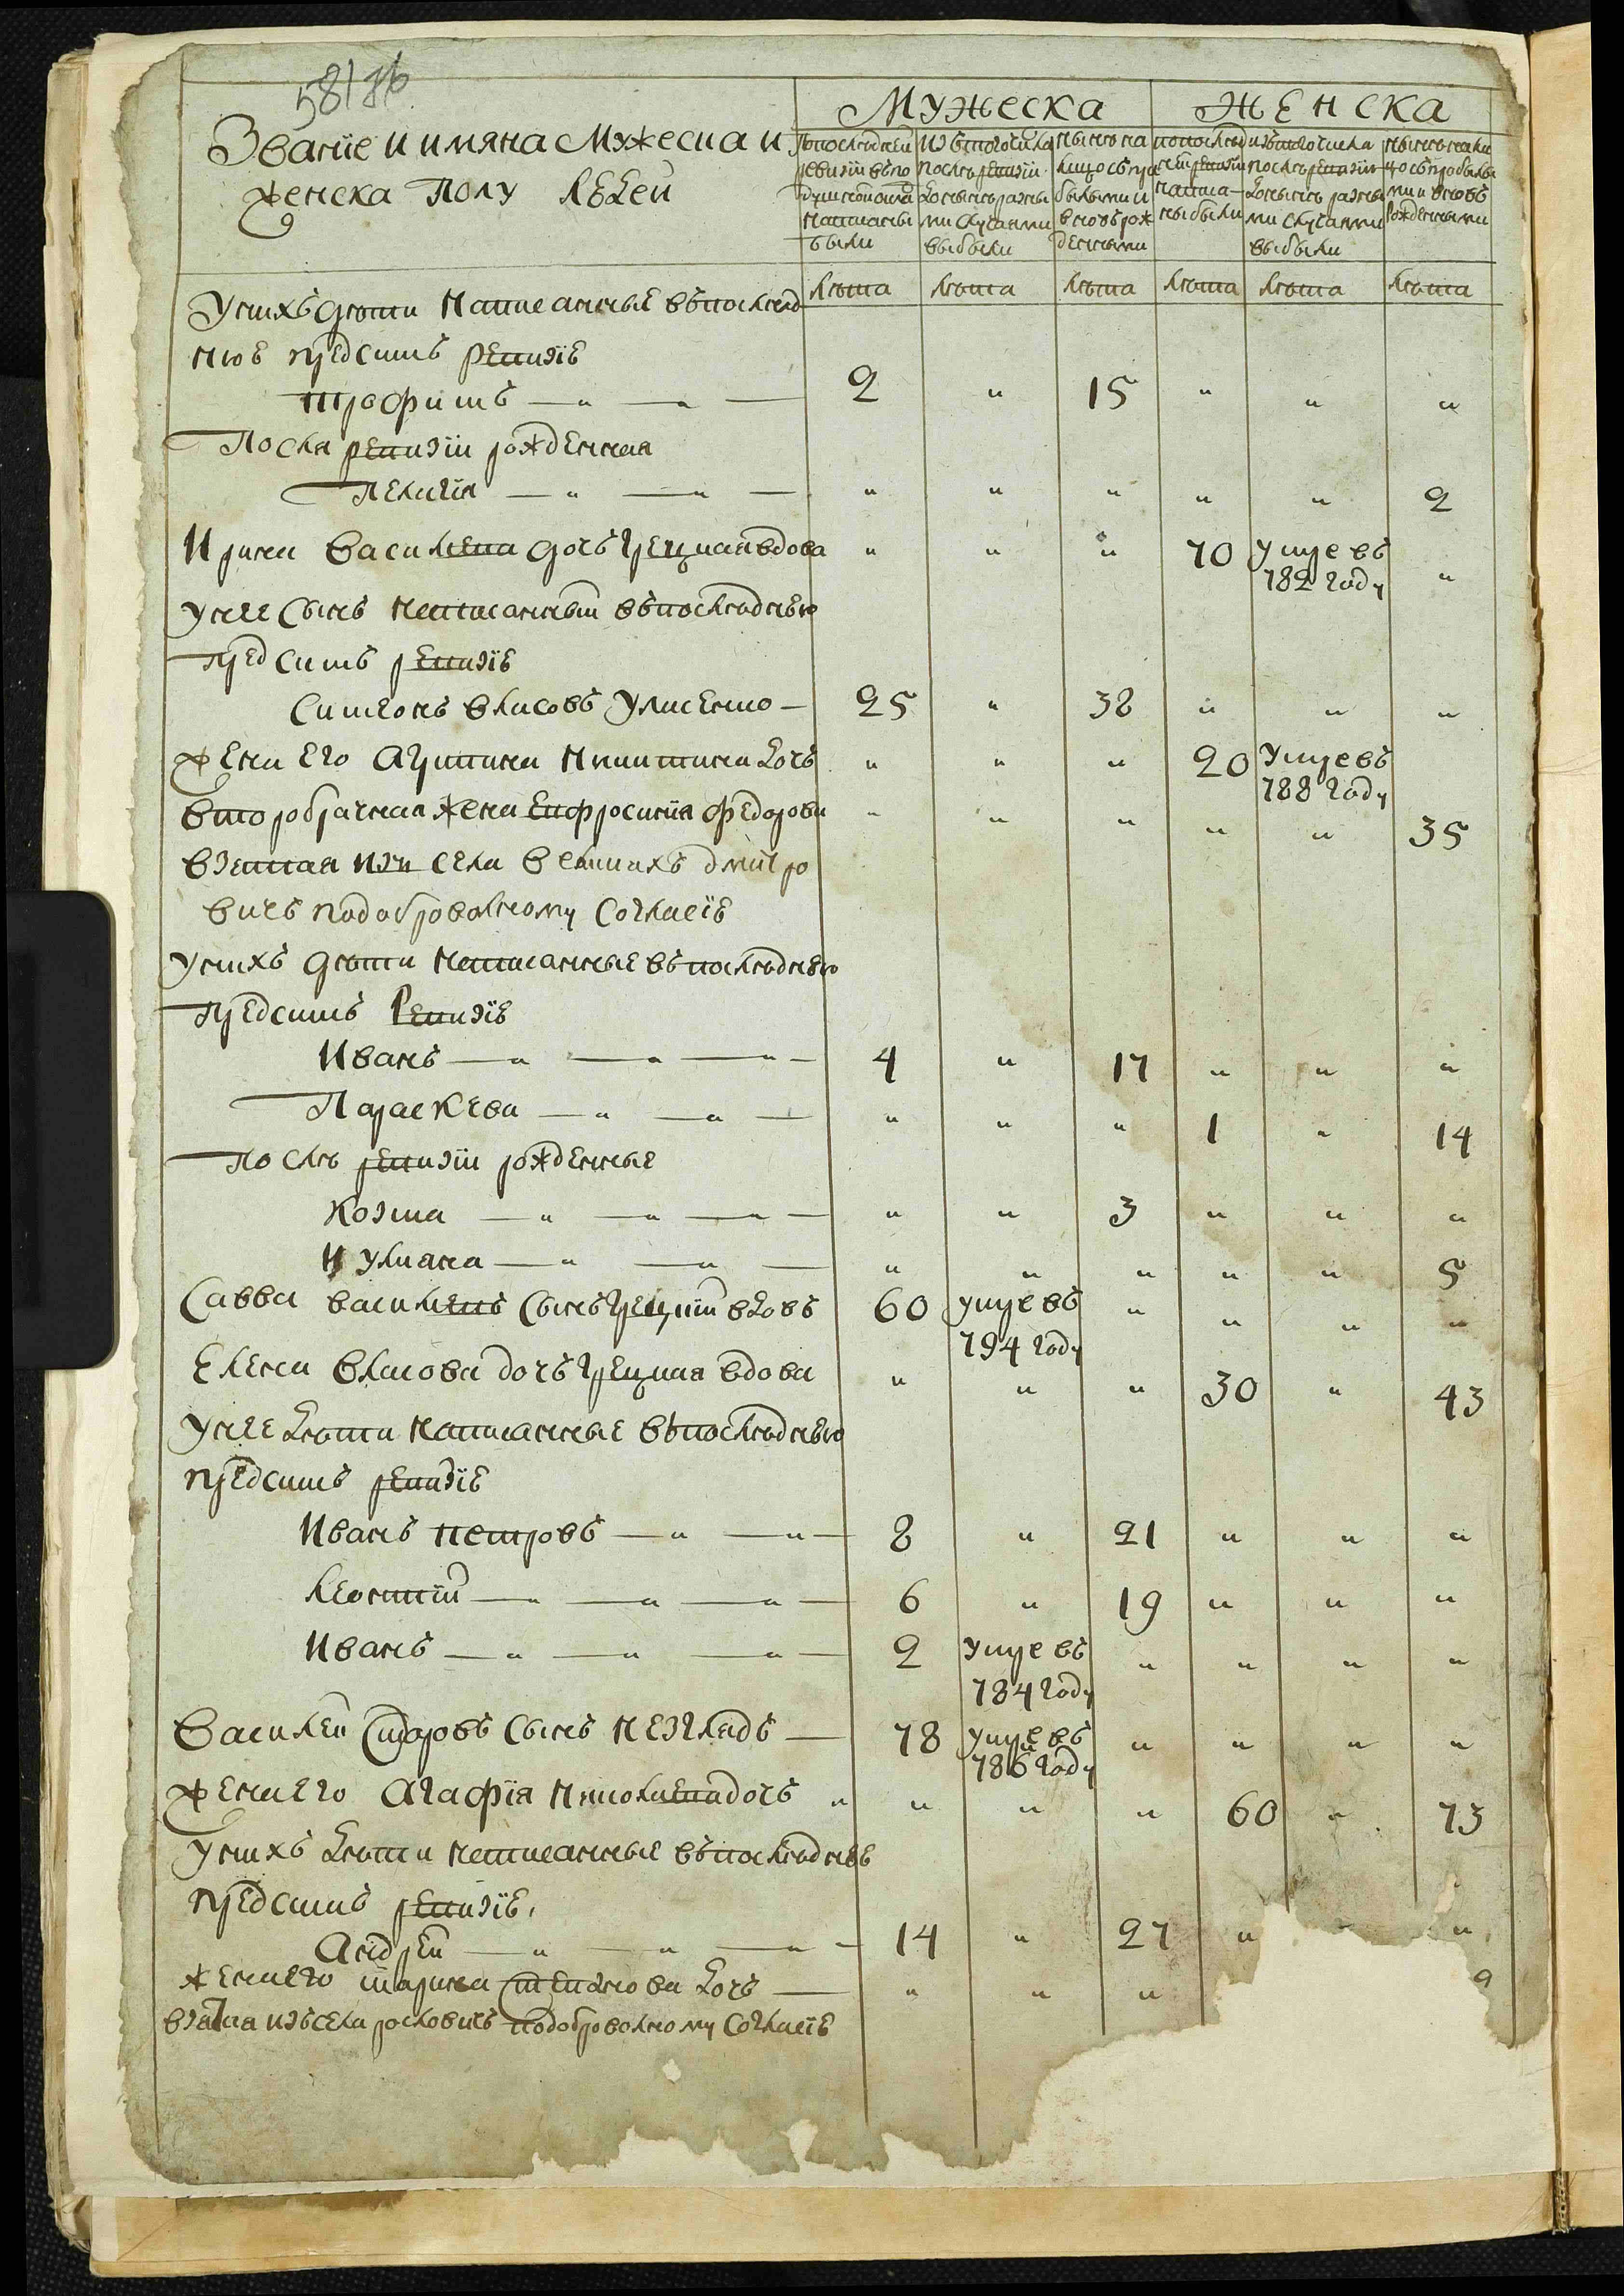 58/86
Мужеска Женска
Звание и имяна Мужеска и
женска Полу людей
По последней ревизіи въ подушной оклад написаны были
Изъ того числа после ревизіи до ныне разными случаями выбыли
Ныне на лицо съ прибылыми и вновь рожденными
По последней ревизіи написаны были
Изъ того числа после ревизіи до ныне разными случаями выбыли
Ныне на лицо съ прибылыми и вновь рожденными
лѣта лѣта лѣта лѣта лѣта лѣта
У нихъ дѣти написанные въ последнюю
предъ симъ ревизіе
Трофимъ — „ — „ — 2 „ 15 „ „ „
Посля ревизіи рожденная
Пелагія — „ — „ — „ „ „ „ „ 2
Ирина Васильева дочь Грецкая вдова „ „ „ 70 умре въ 782 году „
У нее сынъ написанный въ последнюю
предъ симъ ревизіе
Симеонъ Власовъ Улисенко — 25 „ 38 „ „ „
Жена его Агрипина Никитина дочь „ „ „ 20 Умре въ 788 году
Второбрачная жена Ефросинія Федорова „ „ „ „ „ 35
Взетая изъ села Великихъ Дмитро
вичь по добровольному согласіе
У нихъ дѣти написанные въ последнюю
предъ симъ Ревизіе
Иванъ — „ — „ — „ — 4 „ 17 „ „ „
Параскева — „ — „ — „ „ „ 1 „ 14
После ревизіи рожденные
Козма — „ — „ — „ — „ „ 3 „ „ „
Иулиана — „ — „ — „ „ „ „ „ 5
Савва Васильевъ сынъ Грецкій вдовъ 60 умре въ 794 году „ „ „ „
Елена Власова дочь Грецкая вдова „ „ „ 30 „ 43
У нее дѣти написанные въ последнюю
предъ симъ ревизіе
Иванъ Петровъ — „ — „ — 8 „ 21 „ „ „
Леонтій — „ — „ — „ — 6 „ 19 „ „ „
Иванъ — „ — „ — „ — 2 Умре въ 784 году „ „ „ „
Василей Сидоровъ сынъ Незгладъ — 78 умре въ 786 году „ „ „ „
Жена его Агафія Николаева дочь „ „ „ „ 60 „ 73
У нихъ дѣти написанные въ последнюю
предъ симъ ревизіе
Андрей — „ — „ — „ — 14 „ 27 „ „ „
Жена его Марина дочь — „ „ „
Взята изъ села по добровольному согласіе